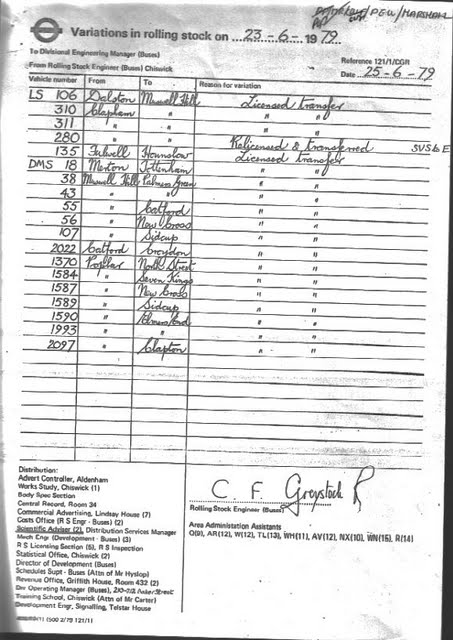 PEW/MARSHAM
Variations in rolling stock on 23-6-1979
To Divisional Engineering Manager (Buses)
From Rolling Stock Engineer (Buses) Chiswick
Reference 121/1/CGR
Date 25-6-79
Vehicle number From To Reason for variation
LS 106 Dalston Muswell Hill Licensed transfer
310 Clapham " " "
311 " " " "
280 " " Relicensed & transferred SUS & E
135 Fulwell Hounslow Licensed transfer
DMS 18 Merton Tottenham " "
38 Muswell Hill Palmers Green " "
43 " " " "
55 " Catford " "
56 " New Cross " "
107 " Sidcup " "
2022 Catford Croydon " "
1370 Poplar North Street " "
1584 " Seven Kings " "
1587 " New Cross " "
1589 " Sidcup " "
1590 " Elmers End " "
1993 " " " "
2097 " Clapton " "
Distribution:
Advert Controller, Aldenham
Works Study, Chiswick (1)
Body Spec Section
Central Record, Room 34
Commercial Advertising, Lindsay House (7)
Costs Office (R S Engr - Buses) (2)
Scientific Adviser (2), Distribution Services Manager
Mech Engr (Development - Buses) (3)
R S Licensing Section (5), R S Inspection
Statistical Office, Chiswick (2)
Director of Development (Buses)
Schedules Supt - Buses (Attn of Mr Hyslop)
Revenue Office, Griffith House, Room 432 (2)
Operating Manager (Buses),
Training School, Chiswick (Attn of Mr Carter)
Development Engr, Signalling, Telstar House
C. F. Greystock
Rolling Stock Engineer (Buses)
Area Administration Assistants
Q(9), AR(12), W(12), TL(13), WH(11), AV(12), NX(10), WN(15), R(14)
(500 2/79 121/11